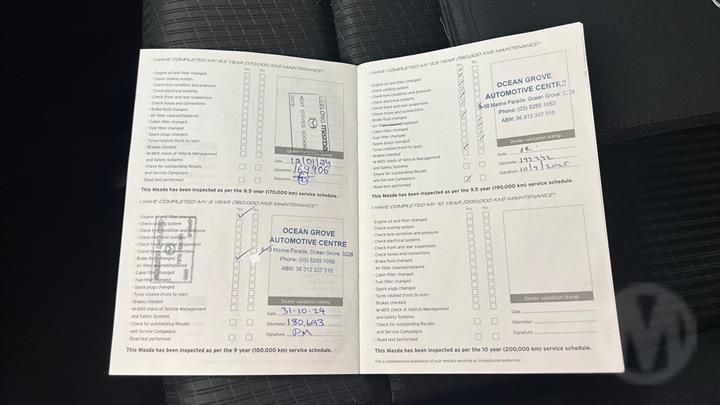 I HAVE COMPLETED MY 8.5 YEAR (170,000 KM) MAINTENANCE*
Yes No
- Engine oil and filter changed
- Check cooling system
- Check tyre condition and pressure
- Check electrical systems
- Check front and rear suspension
- Check hoses and connections
- Brake fluid changed
- Air filter cleaned/replaced
- Cabin filter changed
- Fuel filter changed
- Spark plugs changed
- Tyres rotated (front to rear)
- Brakes checked
- M-MDS check of Vehicle Management
and Safety Systems
- Check for outstanding Recalls
and Service Campaigns
- Road test performed
GEELONG mazda
Date 12/01/24
Odometer 169906
Signature
This Mazda has been inspected as per the 8.5 year (170,000 km) service schedule.
I HAVE COMPLETED MY 9 YEAR (180,000 KM) MAINTENANCE*
Yes No
- Engine oil and filter changed
- Check cooling system
- Check tyre condition and pressure
- Check electrical systems
- Check front and rear suspension
- Check hoses and connections
- Brake fluid changed
- Air filter cleaned/replaced
- Cabin filter changed
- Fuel filter changed
- Spark plugs changed
- Tyres rotated (front to rear)
- Brakes checked
- M-MDS check of Vehicle Management
and Safety Systems
- Check for outstanding Recalls
and Service Campaigns
- Road test performed
OCEAN GROVE
AUTOMOTIVE CENTRE
Marine Parade, Ocean Grove. 3226
Phone: (03) 5255 1050
ABN: 36 312 337 310
Dealer validation stamp
Date 31-10-24
Odometer 180,693
Signature PM
This Mazda has been inspected as per the 9 year (180,000 km) service schedule.
I HAVE COMPLETED MY 9.5 YEAR (190,000 KM) MAINTENANCE*
Yes No
- Engine oil and filter changed
- Check cooling system
- Check tyre condition and pressure
- Check electrical systems
- Check front and rear suspension
- Check hoses and connections
- Brake fluid changed
- Air filter cleaned/replaced
- Cabin filter changed
- Fuel filter changed
- Spark plugs changed
- Tyres rotated (front to rear)
- Brakes checked
- M-MDS check of Vehicle Management
and Safety Systems
- Check for outstanding Recalls
and Service Campaigns
- Road test performed
OCEAN GROVE
AUTOMOTIVE CENTRE
8-10 Marine Parade, Ocean Grove.
Phone: (03) 5255 1050
ABN: 36 312 337 310
Dealer validation stamp
Date
Odometer
Signature 10/7/2025
This Mazda has been inspected as per the 9.5 year (190,000 km) service schedule.
I HAVE COMPLETED MY 10 YEAR (200,000 KM) MAINTENANCE*
Yes No
- Engine oil and filter changed
- Check cooling system
- Check tyre condition and pressure
- Check electrical systems
- Check front and rear suspension
- Check hoses and connections
- Brake fluid changed
- Air filter cleaned/replaced
- Cabin filter changed
- Fuel filter changed
- Spark plugs changed
- Tyres rotated (front to rear)
- Brakes checked
- M-MDS check of Vehicle Management
and Safety Systems
- Check for outstanding Recalls
and Service Campaigns
- Road test performed
Dealer validation stamp
Date
Odometer
Signature
This Mazda has been inspected as per the 10 year (200,000 km) service schedule.
*For a comprehensive explanation of your vehicle's servicing go to mazda.com.au/service